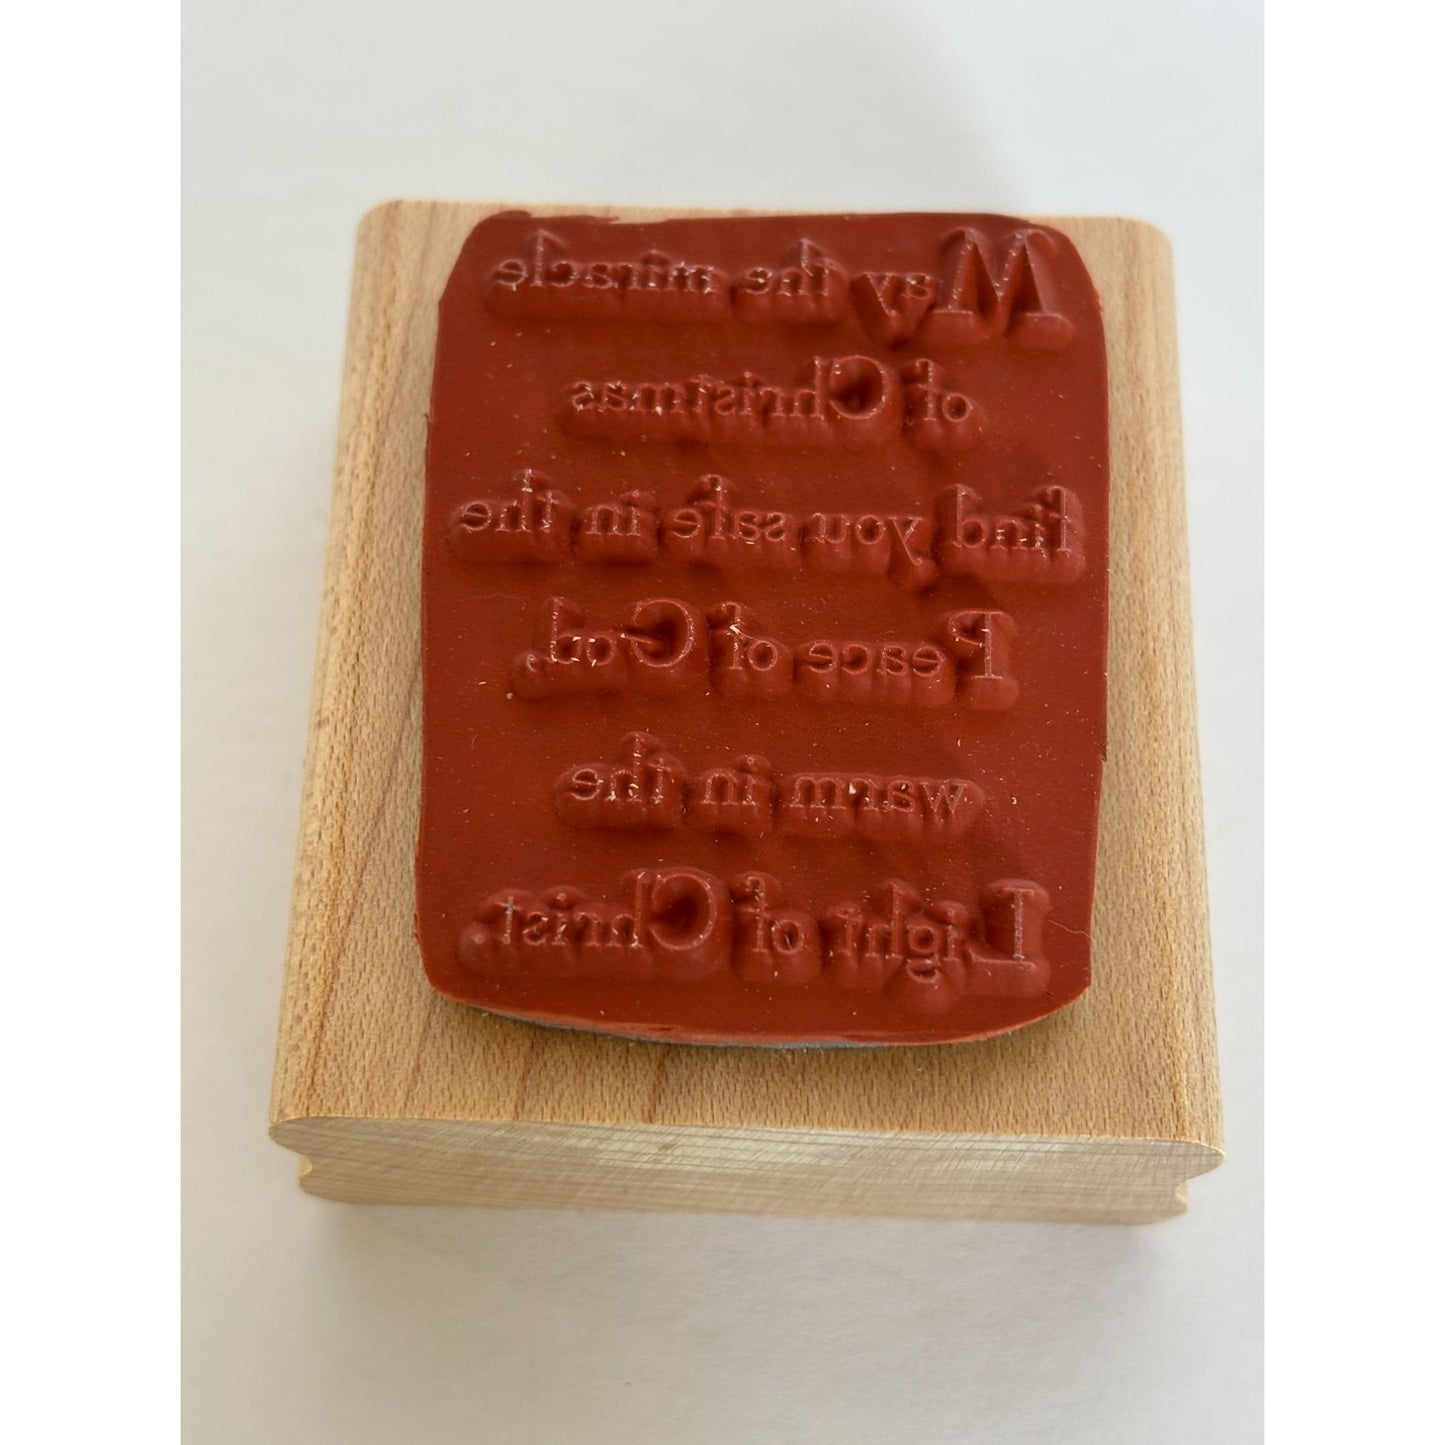 May the miracle
of Christmas
find you safe in the
Peace of God,
warm in the
Light of Christ.